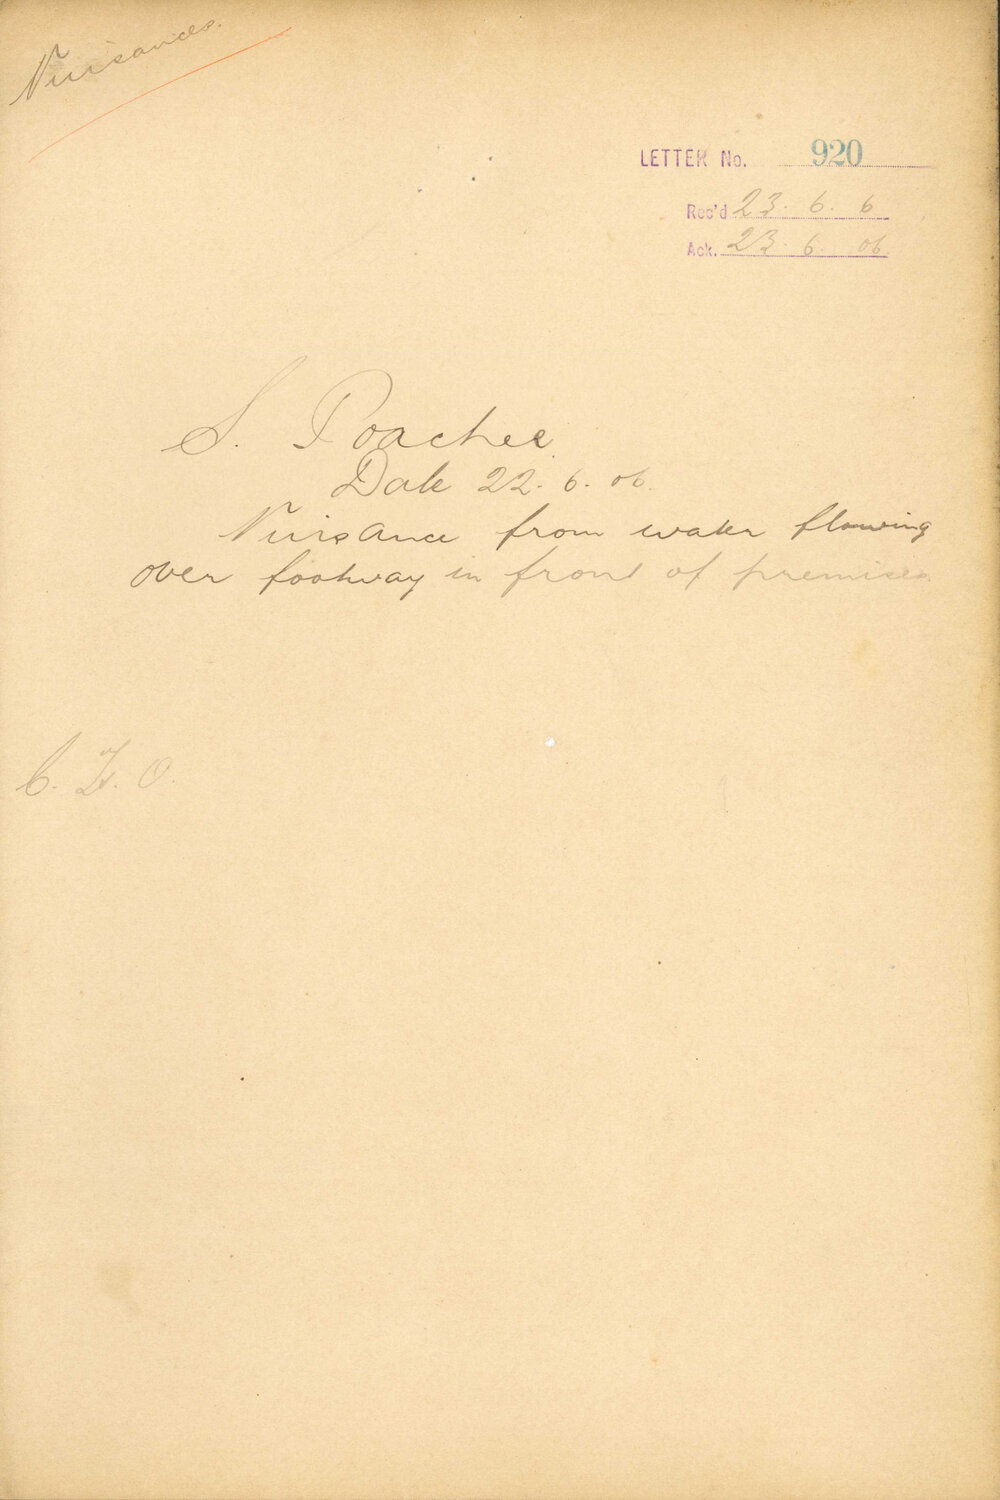 Nuisances.
LETTER No. 920
Rec'd 23. 6. 6
Ack. 23. 6. 06.
S. Poacher
Date 22. 6. 06.
Nuisance from water flowing
over footway in front of premises
C. I. O.